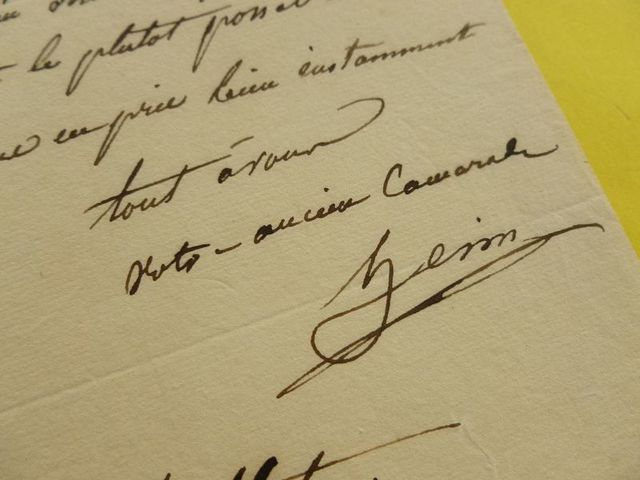 le plutot possi
en prie bien instamment
tout à vous
votr ancien Camarade
heim